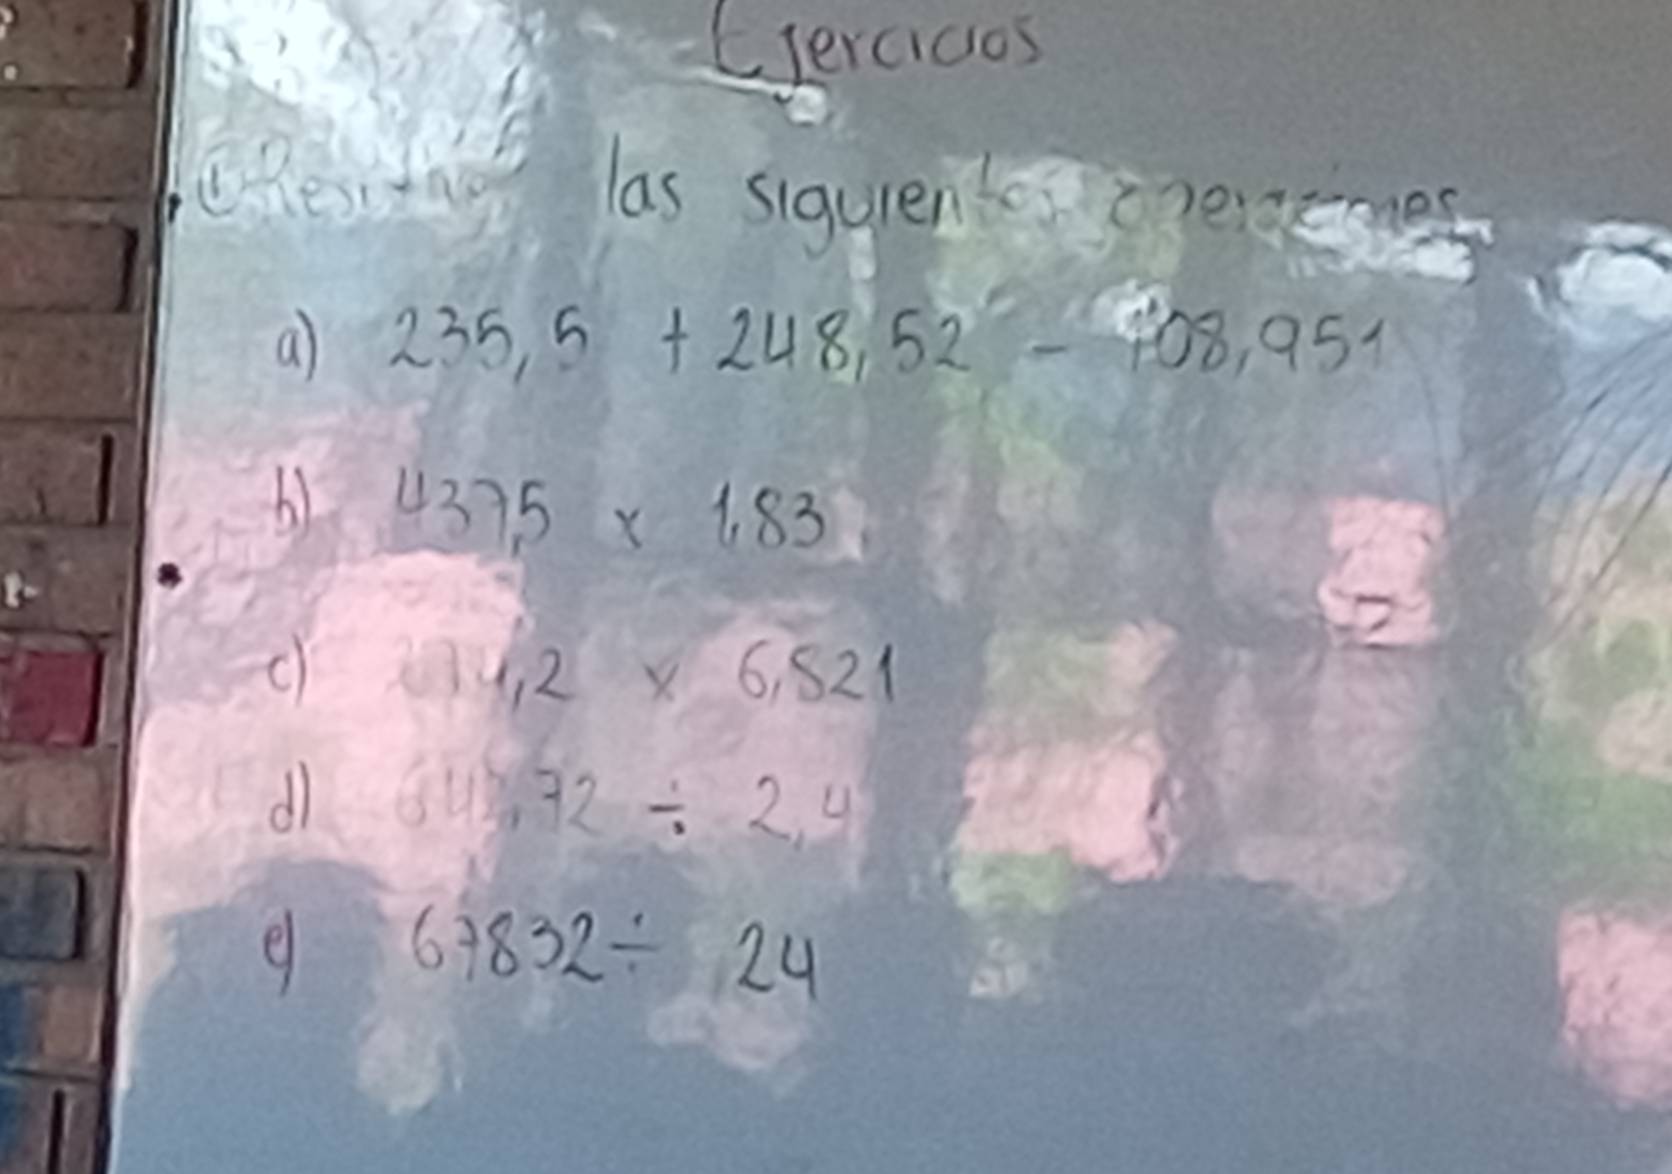 Ejercicios
las siguientes operaciones
a) 235,5 + 248,52 - 108,951
b) 437,5 x 1,83
c) x 6,821
d) ÷ 2,4
e) 67832 ÷ 24